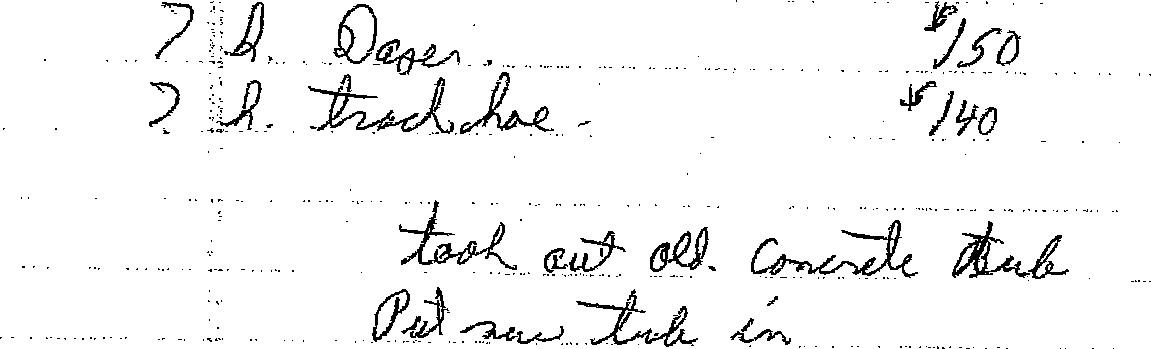 7 h. Dozer. $150
7 h. trackhoe - $140
took out old. concrete tub
Put new tub in